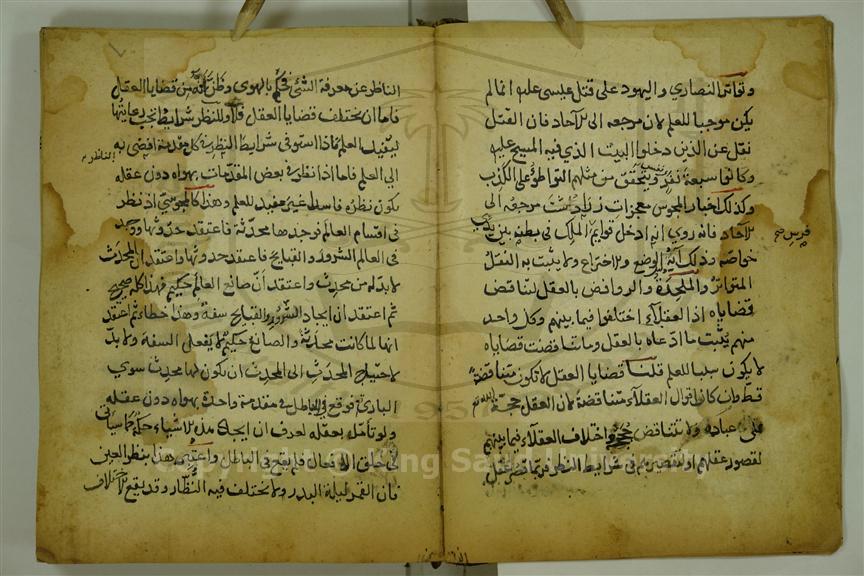 وتواتر النصاري واليهود على قتل عيسى عليه السلام لم
يكن موجبا للعلم لان مرجعه الى الآحاد فان القتل
نقل عن الذين دخلوا البيت الذي فيه المسيح عليه
وكانوا سبعة نفر ويتحقق من مثلهم التواطؤ على الكذب
وكذلك اخبار المجوس معجزات زرادشت مرجعه الى
الآحاد فانه روي انه ادخل قوايم الملك في بطنه بين يدي
فرس صح
خواصه وذلك آية الوضع والاختراع ولا يثبت به النقل
المتواتر والملحدة والروافض بالعقل لتناقض
قضاياه اذ العقلاء اختلفوا فيما بينهم وكل واحد
منهم يثبت ما ادعاه بالعقل وما تناقضت قضاياه
لا يكون سببا للعلم قلنا قضايا العقل لا تكون متناقضة
قط وان كان اقوال العقلاء متناقضة لان العقل حجة الله تع
على عباده ولا تتناقض حججه واختلاف العقلاء فيما بينهم
لقصور عقلهم او لتقصيرهم في شرايط النظر فربما قصر عقل
الناظر عن معرفة الشئ فحكم بالهوى وظن انه من قضايا العقل
فاما ان يختلف قضايا العقل فلا وللنظر شرايط يجب رعايتها
ليفيد العلم فاذا استوفى شرايط النظر في كل مقدمة افضى به
الناظر
الى العلم فاما اذا نظر في بعض المقدمات بهواه دون عقله
يكون نظره فاسدا غير مفيد للعلم وهذا كالمجوسي اذا نظر
في اقسام العالم فوجدها محدثة فاعتقد حدوثها ووجد
في العالم الشرور والقبايح فاعتقد حدوثها واعتقد ان المحدث
لا بد له من محدث واعتقد ان صانع العالم حكيم فهذا كله صحيح
ثم اعتقد ان ايجاد الشرور والقبايح سفه وهذا خطاء ثم اعتقد
انها لما كانت محدثة والصانع حكيم لا يفعل السفه ولا بد
لاحتياج المحدث الى المحدث ان يكون لها محدث سوي
الباري فوقع في الباطل في مقدمة واحدة بهواه دون عقله
ولو تأمل بعقله لعرف ان ايجاد مثل الاشياء حكمة كما سيأتي
في خلق الافعال فلم يقع في الباطل واعتبر هذا بنظر العين
فان القمر ليلة البدر ولا يختلف فيه النظار وقد يقع الاختلاف
Copyright © King Saud University